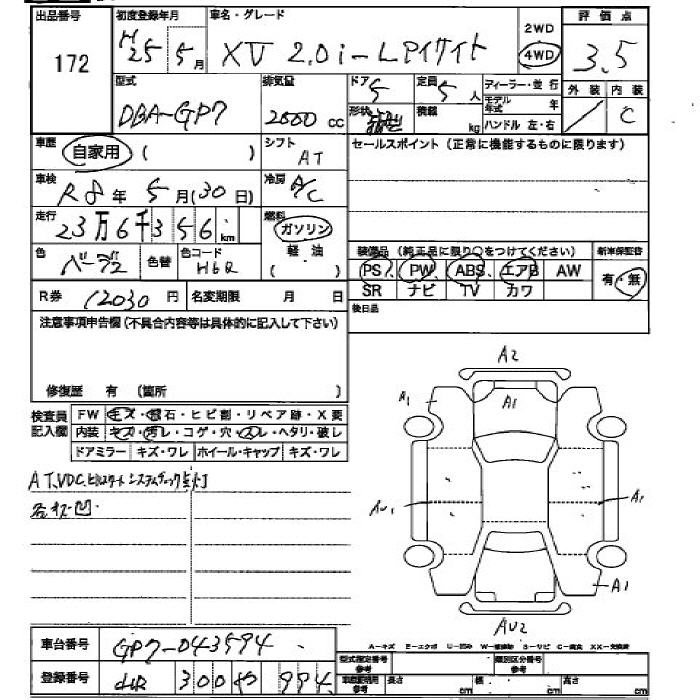 出品番号 初度登録年月 車名・グレード 2WD 評価点
172 H25 5月 XV 2.0i-Lアイサイト 4WD 3.5
型式 排気量 ドア 5 定員 5人 ディーラー・並行 外装 内装
DBA-GP7 2000cc 形状 積載 kg モデル年式 年 C
ハンドル 左・右
車歴 自家用 ( ) シフト AT セールスポイント(正常に機能するものに限ります)
車検 R8年 5月(30日) 冷房 A/C
走行 23万6千356km 燃料 ガソリン
軽油
( )
色 ベージュ 色替 色コード H6R
装備品(純正品に限り○をつけてください) 新車保証書
PS PW ABS エアB AW 有・無
SR ナビ TV カワ
R券 12030円 名変期限 月 日 後日品
注意事項申告欄(不具合内容等は具体的に記入して下さい)
修復歴 有 (箇所 )
検査員記入欄 FW キズ・飛石・ヒビ割・リペア跡・X要
内装 キズ・汚レ・コゲ・穴・スレ・ヘタリ・破レ
ドアミラー キズ・ワレ ホイール・キャップ キズ・ワレ
AT、VDC、ヒルスタートシステムチェック点灯
各キズ凹
A2
A1 A1
AU1 A1
A1
AU2
A-キズ E-エクボ U-凹み W-補修跡 S-サビ C-腐食 XX-交換済
車台番号 GP7-043594 型式指定番号参考 類別区分番号参考
登録番号 300 や 994 車庫証明用参考 長さ cm 幅 cm 高さ cm